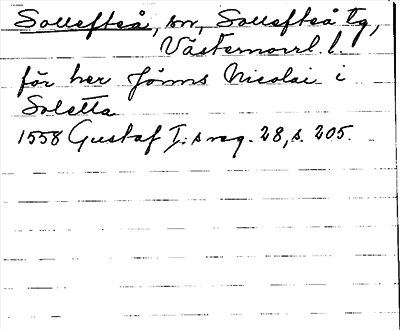 Sollefteå, sn, Sollefteå tg,
Västernorrl. l.
för her Jöns Nicolai i
Soletta
1558 Gustaf I:s reg. 28, s. 205.